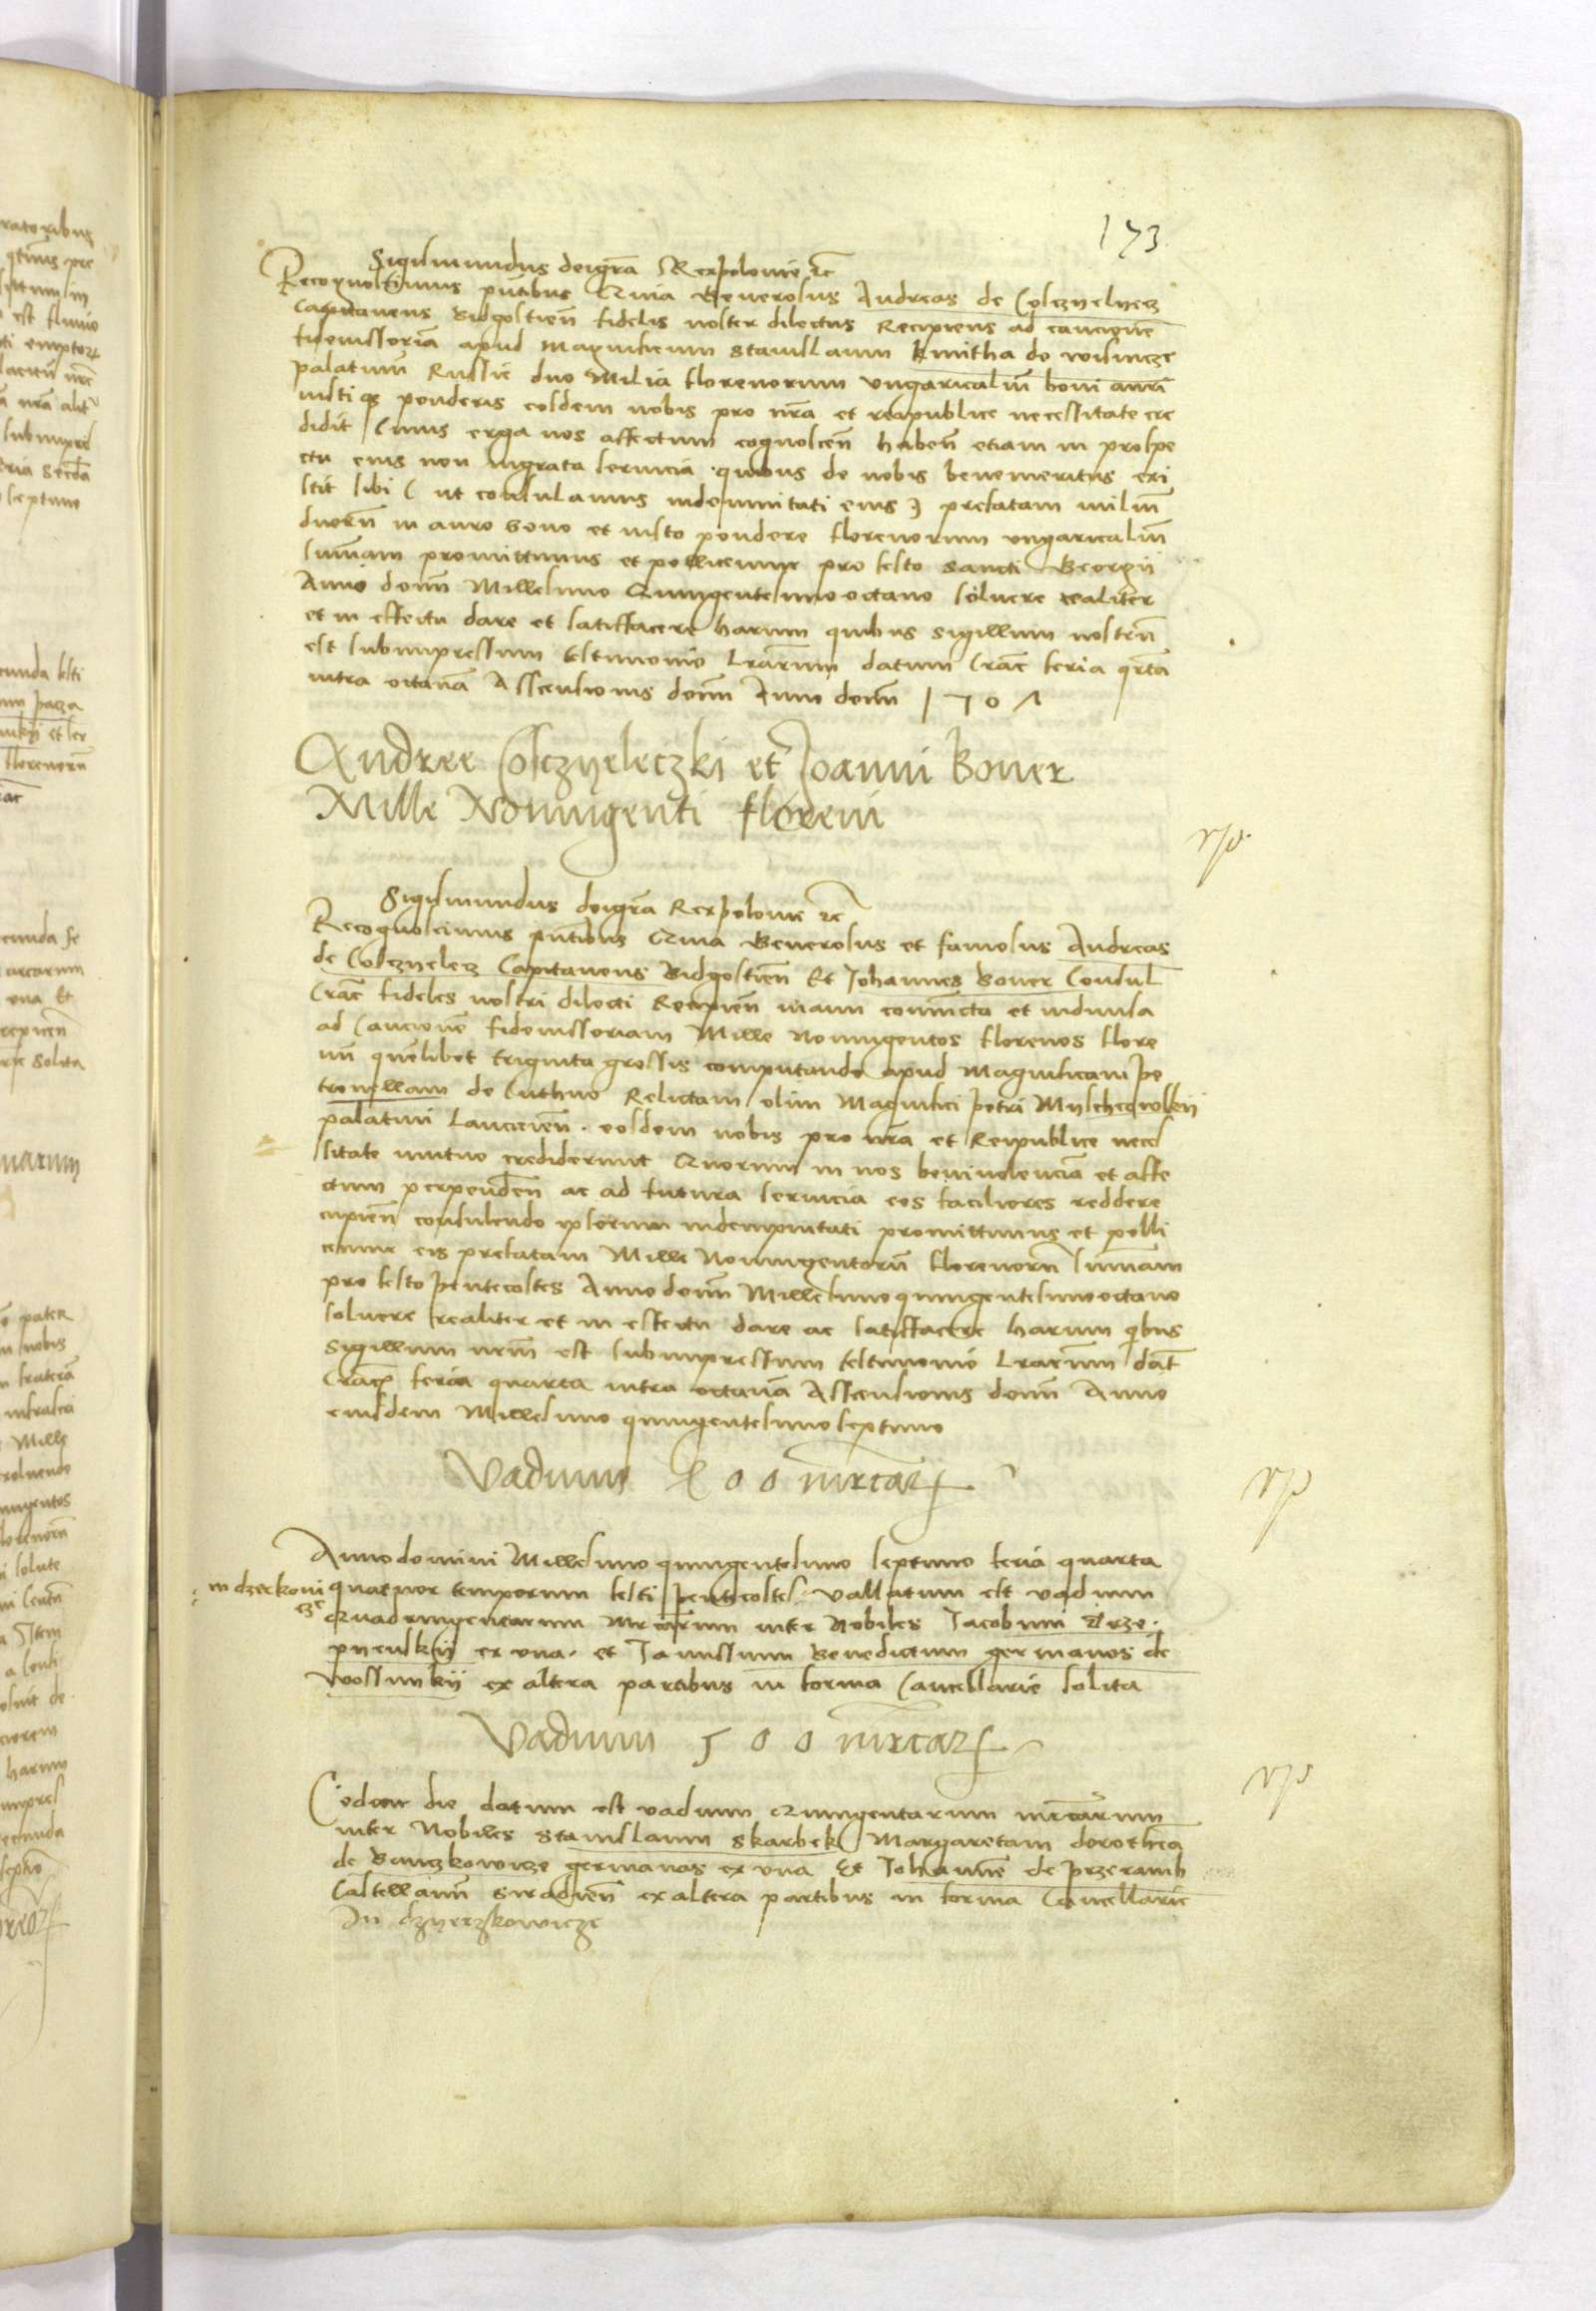 173
Sigismundus dei gra Rex polonie etc
Recognoscimus pntibus Quia Generosus Andreas de Coszyelyecz
Capitaneus Bidgostien fidelis noster dilectus Recipiens ad caucione
fideiussoriam apud magnificum stanislaum kmitha de wisnicze
palatinu Russie duo Milia florenorum ungaricaliu boni auri
iustiqz ponderis eosdem nobis pro nra et reipublice necessitate cre
didit Cuius erga nos affectum cognoscen haben etiam in prospe
ctu eius non ingrata servicia quibus de nobis benemeritus exi
stit sibi ( ut consulamus indemnitati eius ) prefatam miliu
duoru in auro bono et iusto pondere florenorum ungaricaliu
summam promittimus et pollicemur pro festo sancti Georgii
Anno domi Millesimo Quingentesimo octavo solvere realiter
et in effectu dare et satisfacere harum quibus sigillum nostru
est subimpressum testimonio lrarum datum Crac feria qrta
intra octava Ascensionis domi Anno domi 1507
Andree Coszyeleczki et Joanni Boner
Mille Noningenti floreni
Sigismundus dei gra Rex polonie etc
Recognoscimus pntibus Quia Generosus et famosus Andreas
de Coszyelecz Capitaneus Bidgostien Et Johannes Boner Consul
Crac fideles nostri dilecti Recipien manu coniuncta et indivisa
ad Caucione fideiussoriam Mille noningentos florenos flore
nu quelibet triginta grossis computando apud Magnificam pe
tronellam de Cuthno Relictam olim Magnifici petri Myschcowskij
palatini Lancicien eosdem nobis pro nra et Reipublice neces
sitate mutuo crediderunt Quorum in nos benivolencia et affe
ctum perpenden ac ad futura servicia eos faciliores reddere
cupien consulendo ipsorum indempnitati promittimus et polli
cemur eis prefatam Mille Noningentoru florenoru summam
pro festo pentecostes Anno domi Millesimo quingentesimo octavo
solvere realiter et in effectu dare ac satisfacere harum qibus
Sigillum nrm est subimpressum testimonio lrarum dat
Crac feria quarta intra octava Ascensionis domi Anno
eiusdem Millesimo quingentesimo septimo
Vadium 400 mrcar
Anno domini Millesimo quingentesimo septimo feria quarta
in dzeckoui quatuor temporum festi pentecostes vallatum est vadium
cze Quadringentarum Mrcarum inter Nobiles Jacobum Drze
pnenskij ex una et Janussum Benedictum germanos de
wossinkij ex altera partibus in forma Cancellarie solita
Vadium 500 mrcar
Eodem die datum est vadium Quingentarum mrcarum
inter Nobiles stanislaum skarbek Margaretam dorothea
de Banczkowicze germanas ex una Et Johanne de przeramb
Castellanu siradien ex altera partibus in forma Cancellarie
In dzyeczkowicze